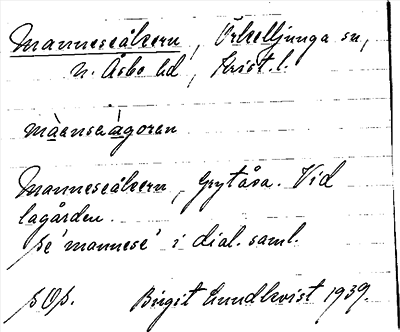 Manneseåkern, Örkelljunga sn,
N. Åsbo hd, Krist. l.
màensaágoren
Manneseåkern, Grytåsa. Vid
lagården.
Se 'mannese' i dial. saml.
Birgit Lundkvist 1939.